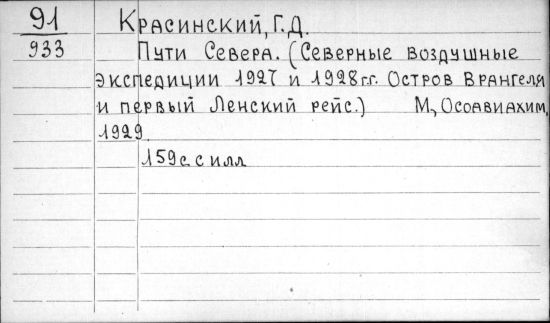 91
933
Красинский, Г.Д.
Пути Севера. (Северные воздушные
экспедиции 1927 и 1928 г.г. Остров Врангеля
и первый Ленский рейс.) М., Осоавиахим,
1929.
159 с. с илл